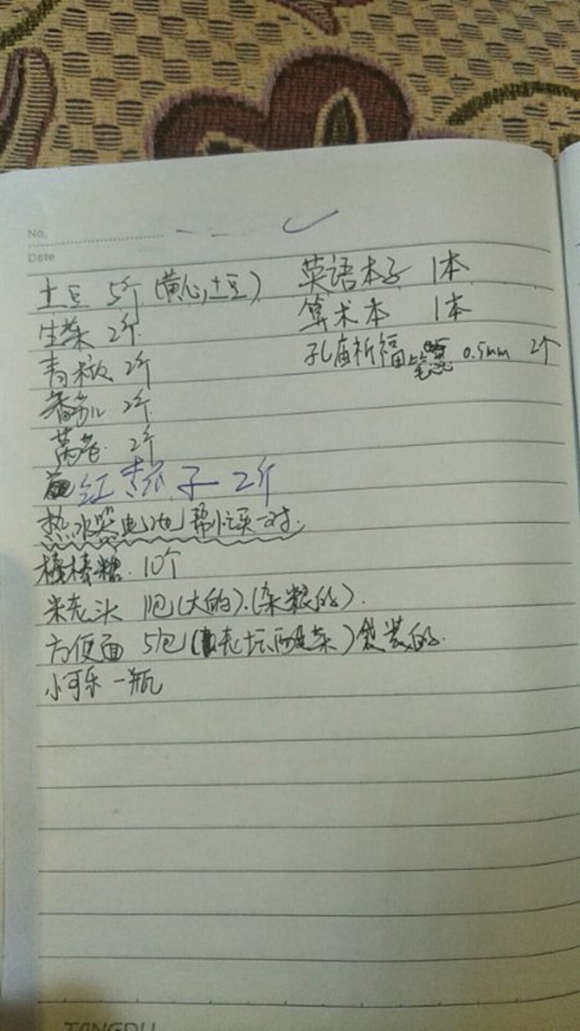 No.
Date
土豆 5斤 (黄心土豆)
生菜 2斤
青椒 2斤
番茄 2斤
莴苣 2斤
红茄子 2斤
热水器电池帮忙买一对.
棒棒糖. 10个
米老头 1包(大的).(杂粮的).
方便面 5包(老坛酸菜)袋装的.
小可乐 一瓶
英语本子 1本
算术本 1本
孔庙祈福笔 0.5mm 2个